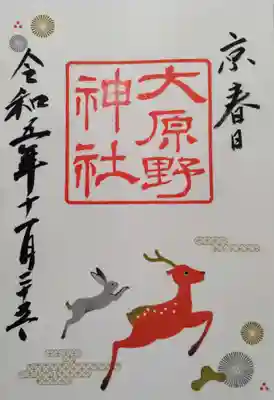 京春日
大原野
神社
令和五年十一月二十五日